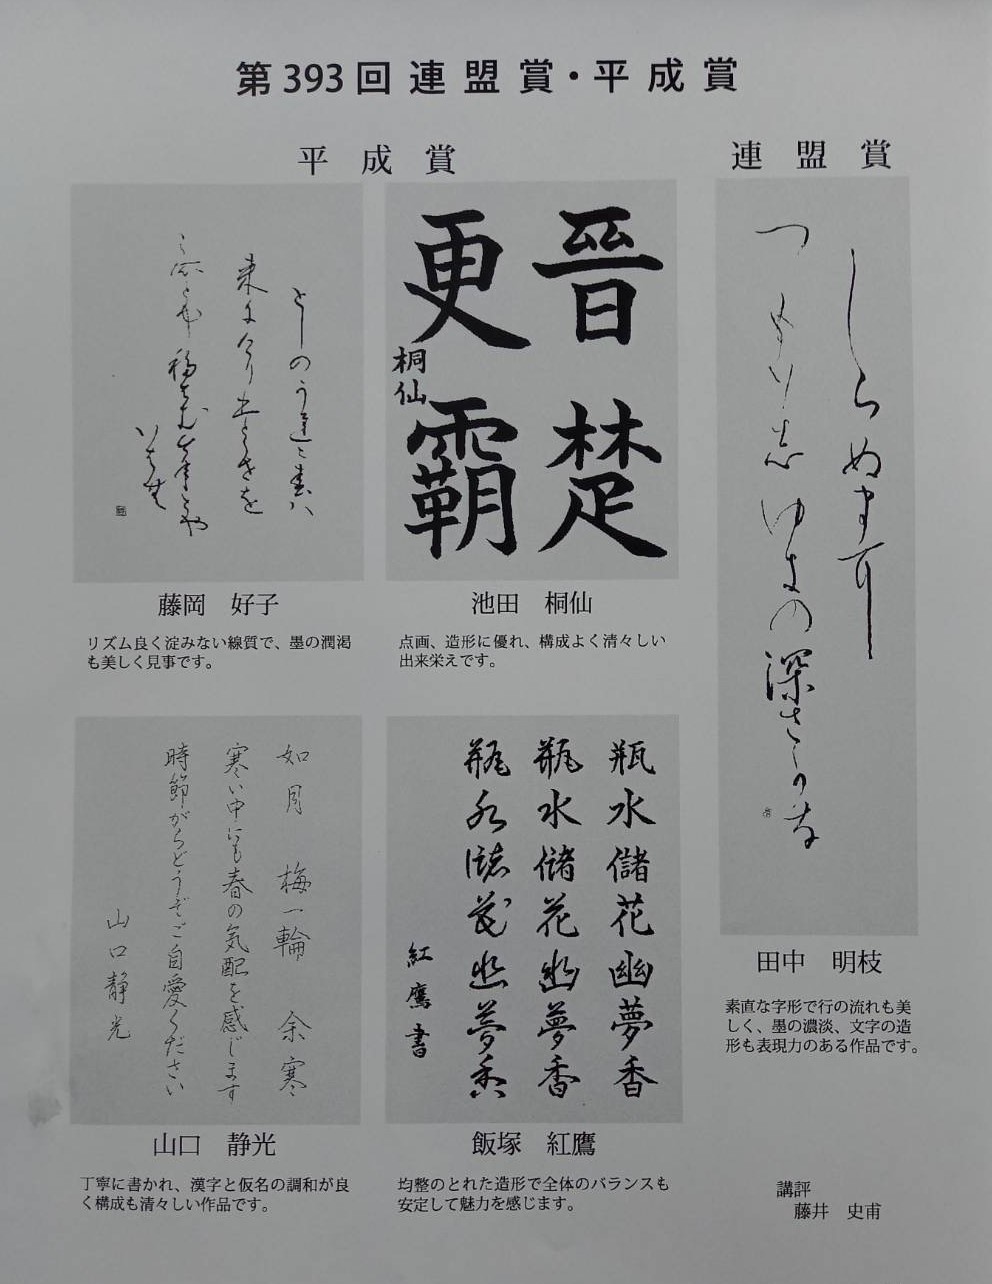 第393回 連盟賞・平成賞
平成賞
連盟賞
晋楚
更霸
桐仙
藤岡 好子
リズム良く淀みない線質で、墨の潤渇
も美しく見事です。
池田 桐仙
点画、造形に優れ、構成よく清々しい
出来栄えです。
如月 梅一輪 余寒
寒い中にも春の気配を感じます
時節がらどうぞご自愛ください
山口静光
山口 静光
丁寧に書かれ、漢字と仮名の調和が良
く構成も清々しい作品です。
瓶水儲花幽夢香
瓶水儲花幽夢香
瓶水儲花幽夢香
紅鷹書
飯塚 紅鷹
均整のとれた造形で全体のバランスも
安定して魅力を感じます。
田中 明枝
素直な字形で行の流れも美
しく、墨の濃淡、文字の造
形も表現力のある作品です。
講評
藤井 史甫